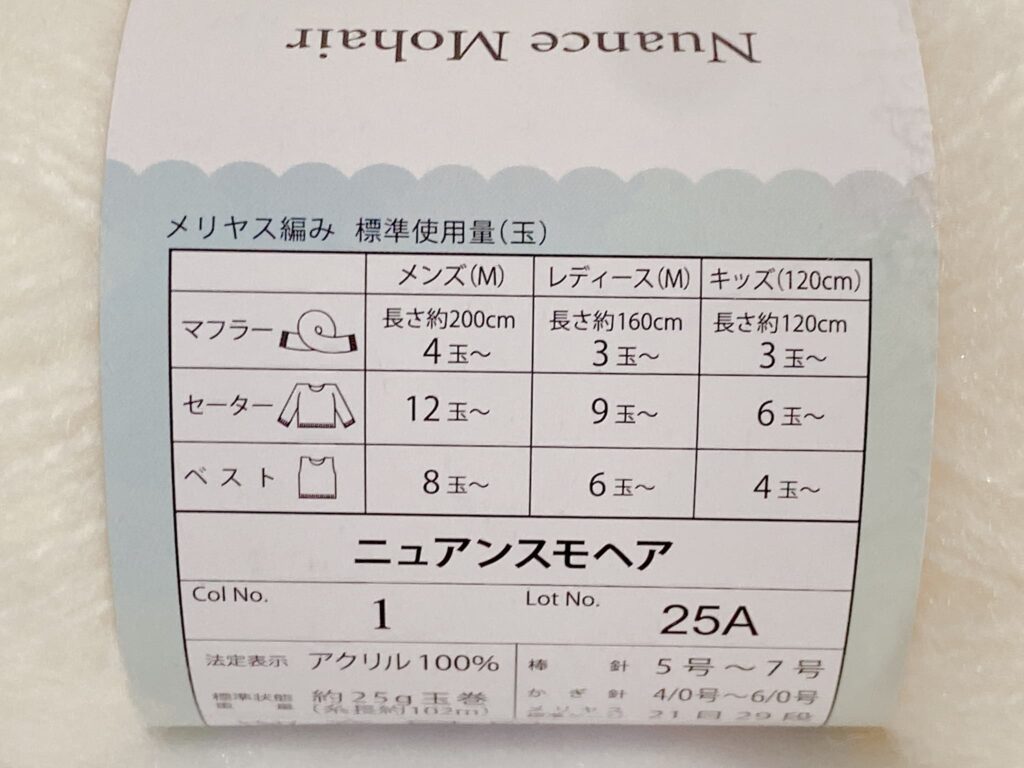 Nuance Mohair
メリヤス編み 標準使用量(玉)
メンズ(M) レディース(M) キッズ(120cm)
マフラー 長さ約200cm 4玉〜 長さ約160cm 3玉〜 長さ約120cm 3玉〜
セーター 12玉〜 9玉〜 6玉〜
ベスト 8玉〜 6玉〜 4玉〜
ニュアンスモヘア
Col No. 1 Lot No. 25A
法定表示 アクリル100% 棒針 5号〜7号
標準状態重量 約25g玉巻 (糸長約102m) かぎ針 4/0号〜6/0号
メリヤス 21目29段